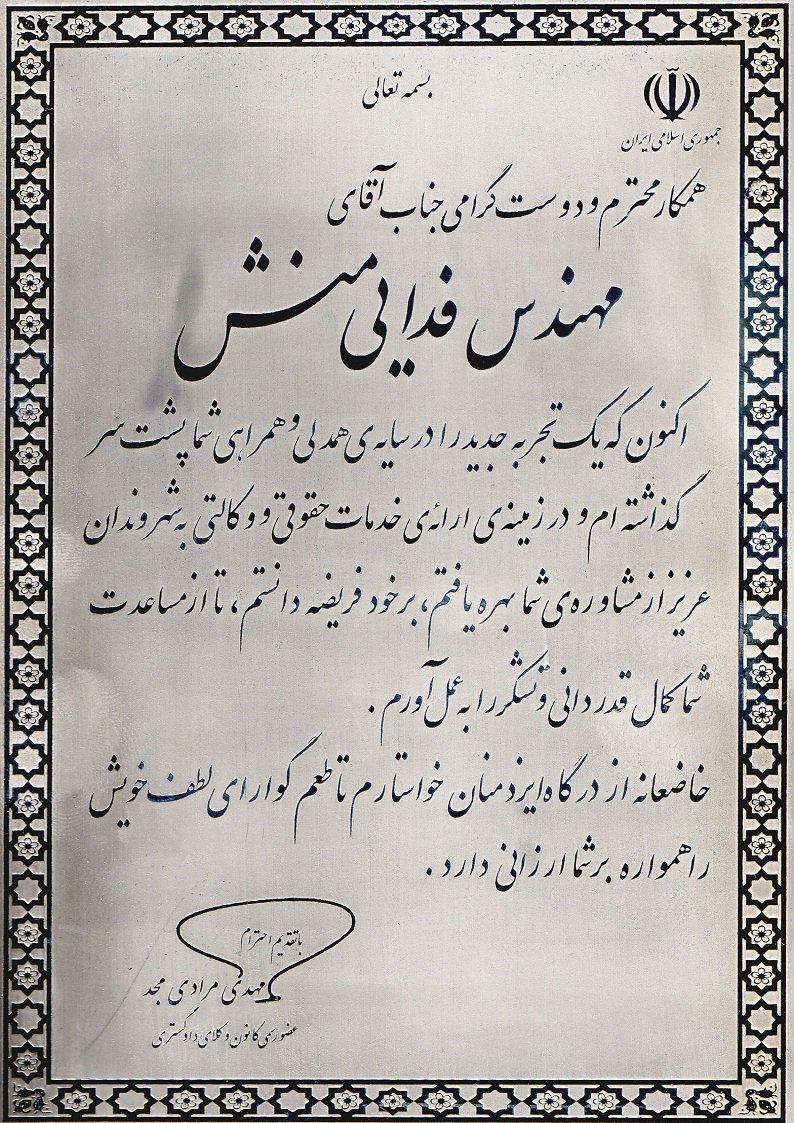 بسمه تعالی
جمهوری اسلامی ایران
همکار محترم و دوست گرامی جناب آقای
مهندس فدایی منش
اکنون که یک تجربه جدید را در سایه‌ی همدلی و همراهی شما پشت سر
گذاشته ام و در زمینه‌ی ارائه‌ی خدمات حقوقی و وکالتی به شهروندان
عزیز از مشاوره‌ی شما بهره یافتم، بر خود فریضه دانستم، تا از مساعدت
شما کمال قدردانی و تشکر را به عمل آورم.
خاضعانه از درگاه ایزد منان خواستارم تا طعم گوارای لطف خویش
را همواره بر شما ارزانی دارد.
با تقدیم احترام
مهدی مرادی مجد
عضو رسمی کانون وکلای دادگستری